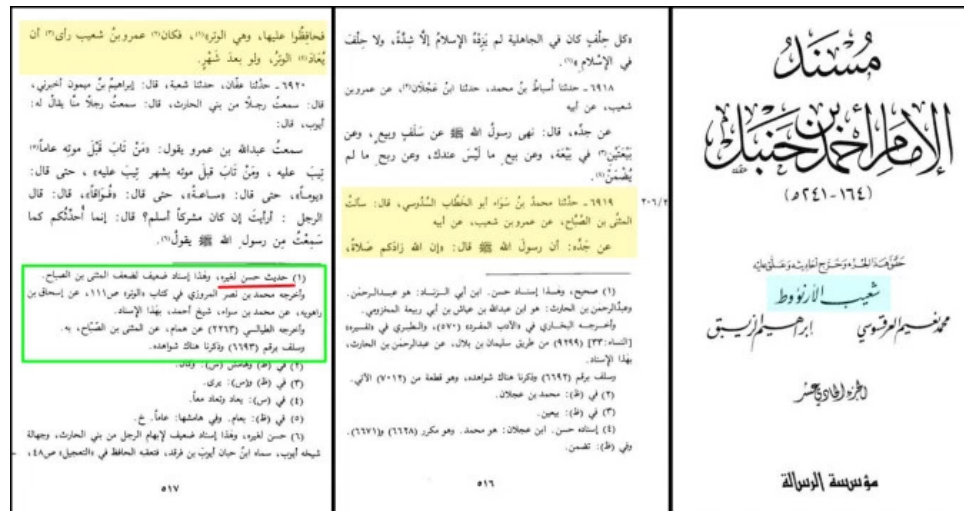 مُسْنَد
الإمام أحمد بن حنبل
(١٦٤-٢٤١ه)
حَقَّقَ هَذَا الجُزْء وَخَرَّجَ أحَادِيثَهُ وَعَلَّقَ عَلَيْهِ
شعيب الأرنؤوط
محمد نعيم العرقسوسي إبراهيم الزيبق
الجزء الحادي عشر
مؤسسة الرسالة
«كل حِلْفٍ كان في الجاهلية لم يَزِدْهُ الإسلامُ إلَّا شِدَّةً، ولا حِلْفَ
في الإسْلام»(١).
٦٩١٨ - حدثنا أسباطُ بنُ محمد، حدثنا ابنُ عَجْلَان(٢)، عن عمرو بن
شعيب، عن أبيه
عن جدِّه، قال: نهى رسولُ الله ﷺ عن سَلَفٍ وبيعٍ، وعن
بَيْعَتَيْنِ(٣) في بَيْعَة، وعن بيعِ ما لَيْسَ عندك، وعن ربح ما لم
يُضْمَنْ(٤).
٢٠٦/٢ ٦٩١٩ - حدَّثنا محمدُ بنُ سَوَاء أبو الخَطَّاب السَّدُوسي، قال: سألتُ
المثنَّى بن الصَّبَّاح، عن عمرو بن شعيب، عن أبيه
عن جَدِّه: أن رسولَ الله ﷺ قال: «إن الله زادَكم صَلاةً،
(١) صحيح، وهٰذا إسناد حسن. ابن أبي الزناد: هو عبدالرحمٰن.
وعبدُالرحمٰن بن الحارث: هو ابن عبدالله بن عياش بن أبي ربيعة المخزومي.
وأخرجه البخاري في «الأدب المفرد» (٥٧٠)، والطبري في «تفسيره»
[النساء:٣٣] (٩٢٩٩) من طريق سليمان بن بلال، عن عبدالرحمٰن بن الحارث،
بهٰذا الإسناد.
وسلف برقم (٦٦٩٢) وذكرنا هناك شواهده، وهو قطعة من (٧٠١٢) الآتي.
(٢) في (ظ): محمد بن عجلان.
(٣) في (ظ): بيعين.
(٤) إسناده حسن. ابن عجلان: هو محمد. وهو مكرر (٦٦٢٨) و(٦٦٧١).
وفي (ظ): تضمن.
٥١٦
فحافِظُوا عليها، وهي الوتر»(١)، فكان(٢) عمرو بنُ شعيب رأى(٣) أن
يُعَادَ(٤) الوترُ، ولو بعدَ شَهْرٍ.
٦٩٢٠ - حدَّثنا عفَّان، حدثنا شعبة، قال: إبراهيمُ بنُ ميمون أخبرني،
قال: سمعتُ رجلًا من بني الحارث، قال: سمعتُ رجلًا منَّا يقالُ له:
أيوب، قال:
سمعتُ عبدالله بن عمرو يقول: «مَنْ تَابَ قَبْلَ موتِه عاماً(٥)
تِيبَ عليه، ومَنْ تَابَ قبلَ موته بشهر تِيبَ عليه»، حتى قال:
«يوماً»، حتى قال: «ساعةً»، حتى قال: «فُوَاقاً»، قال: قال
الرجل: أرأيتَ إن كان مشركاً أسلم؟ قال: إنما أُحدِّثُكم كما
سَمِعْتُ مِن رسولِ الله ﷺ يقولُ(٦).
(١) حديث حسن لغيره، وهٰذا إسناد ضعيف لضعف المثنى بن الصباح.
وأخرجه محمد بن نَصر المروزي في كتاب «الوتر» ص١١١، عن إسحاق بن
راهويه، عن محمد بن سواء، شيخ أحمد، بهٰذا الإسناد.
وأخرجه الطيالسي (٢٢٦٣) عن همام، عن المثنى بن الصَّبَّاح، به.
وسلف برقم (٦٦٩٣) وذكرنا هناك شواهده.
(٢) في (ظ) وهامش (س): وكان.
(٣) في (ظ) و(س): يرى.
(٤) في (س): يعاد وتعاد معاً.
(٥) في (ظ): بعام. وفي هامشها: عاماً. خ.
(٦) حسن لغيره، وهٰذا إسناد ضعيف لإبهام الرجل من بني الحارث، وجهالة
شيخه أيوب، سماه ابنُ حبان أيوبَ بن فرقد، فتعقبه الحافظ في «التعجيل» ص٤٨،
٥١٧